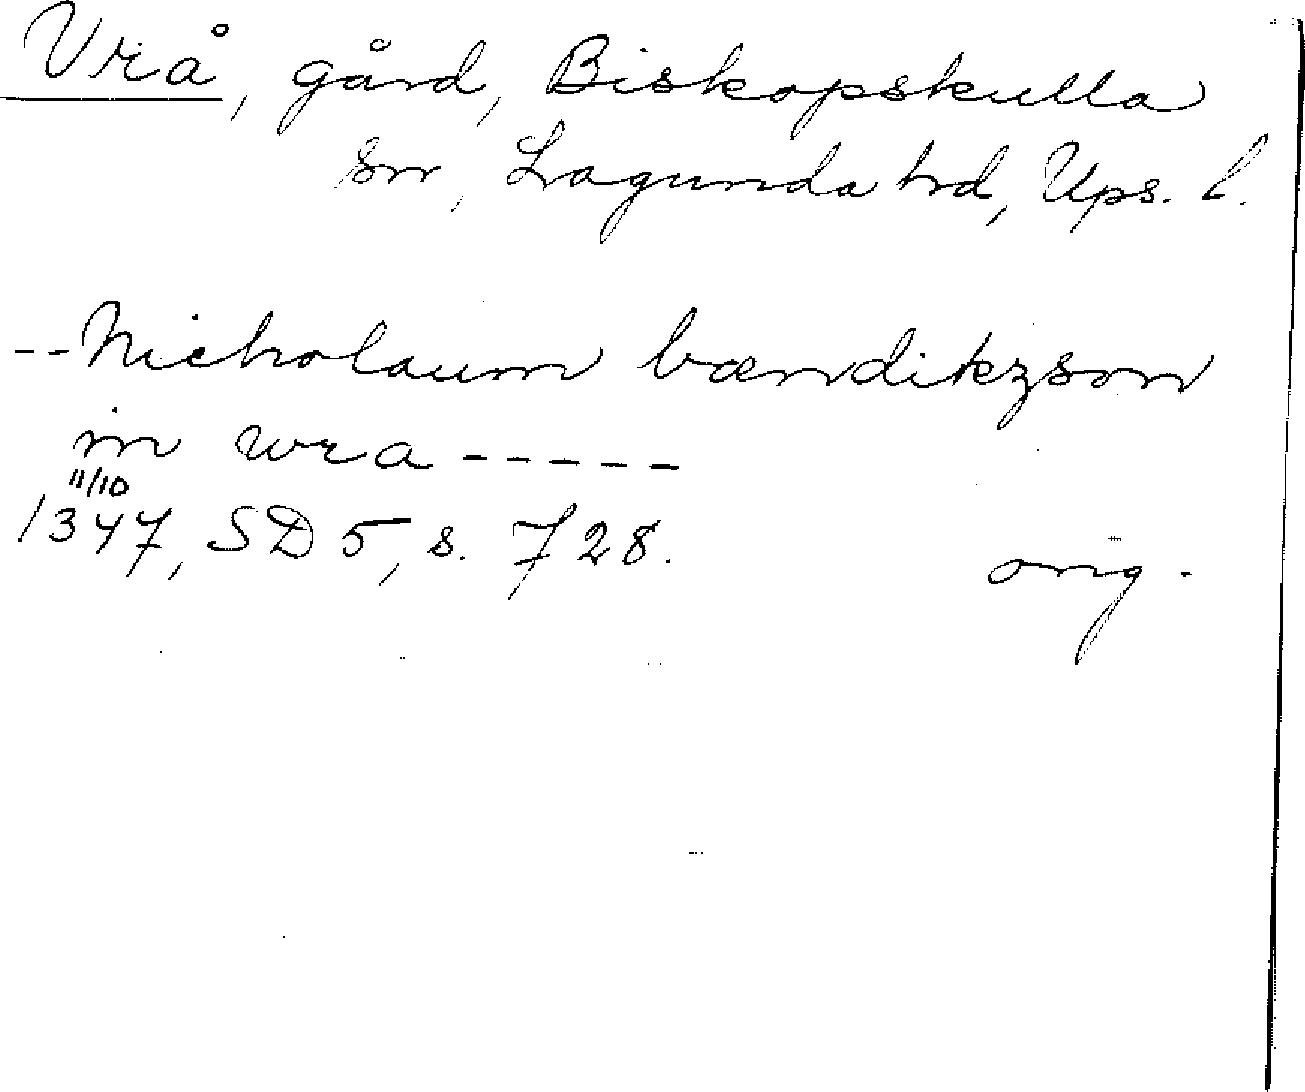 Vrå, gård, Biskopskulla
sn, Lagunda hd, Ups. l.
--Nicholaum bændikzson
in wra-----
11/10
1347, SD 5, s. 728.
orig.